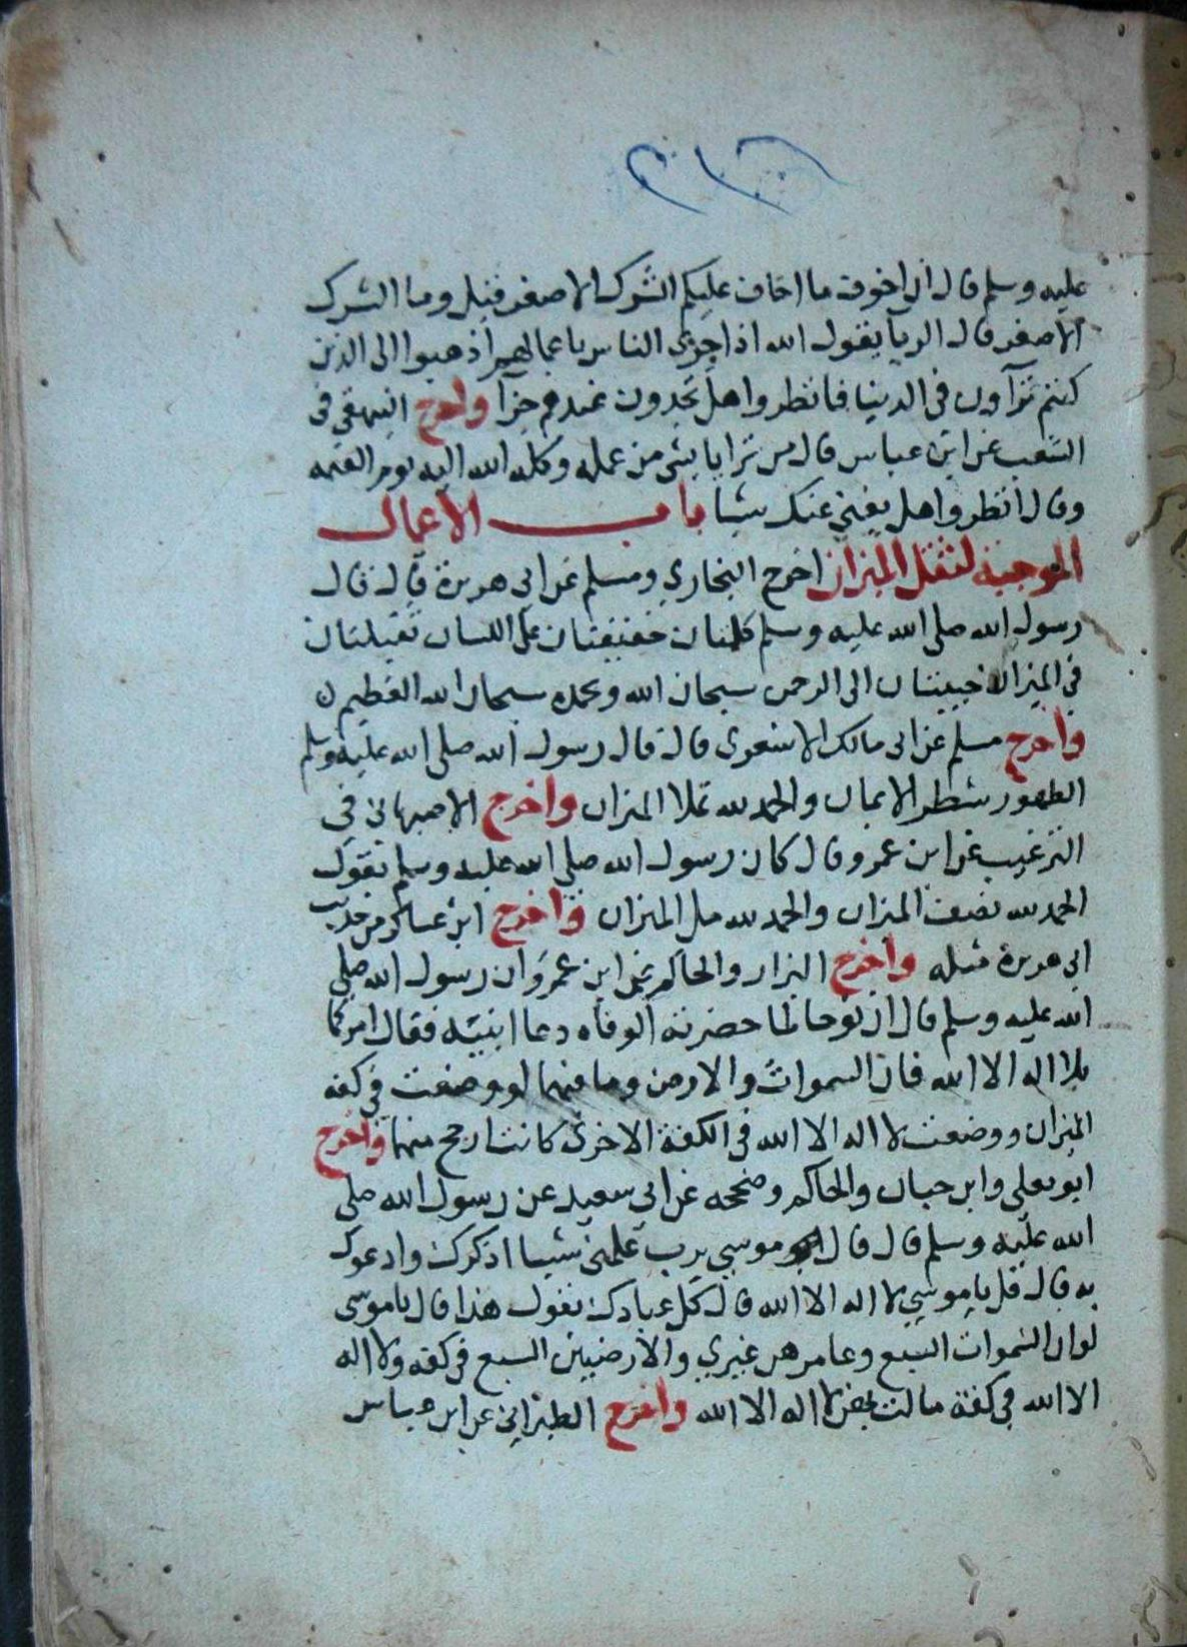 عليه وسلم قال ان اخوف ما اخاف عليكم الشرك الاصغر قيل وما الشرك
الاصغر قال الريا يقول الله اذا جزى الناس باعمالهم اذهبوا الى الذين
كنتم تراون في الدنيا فانظروا هل تجدون عندهم جزآ واخرج البيهقي في
الشعب عن ابن عباس قال من ترايا بشي من عمله وكله الله اليه يوم القيمه
وقال انظروا هل يغني عنك شيا باب الاعمال
الموجبة لثقل الميزان اخرج البخاري ومسلم عن ابي هريرة قال قال
رسول الله صلى الله عليه وسلم كلمتان خفيفتان على اللسان ثقيلتان
في الميزان حبيبتان الى الرحمن سبحان الله وبحمده سبحان الله العظيم
واخرج مسلم عن ابي مالك الاشعري قال قال رسول الله صلى الله عليه وسلم
الطهور شطر الايمان والحمد لله تملا الميزان واخرج الاصبهاني في
الترغيب عن ابن عمرو قال كان رسول الله صلى الله عليه وسلم يقول
الحمد لله نصف الميزان والحمد لله مل الميزان واخرج ابن عساكر من حديث
ابي هريرة مثله واخرج البزار والحاكم عن ابن عمرو ان رسول الله صلى
الله عليه وسلم قال ان نوحا لما حضرته الوفاه دعا ابنيه فقال امركما
بلا اله الا الله فان السموات والارض وما فيهما لو وضعت في كفه
الميزان ووضعت لا اله الا الله في الكفة الاخرى كانت ارجح منهما واخرج
ابو يعلى وابن حبان والحاكم وصححه عن ابي سعيد عن رسول الله صلى
الله عليه وسلم قال قال موسي يرب علمني شيا اذكرك وادعوك
به قال قل يا موسي لا اله الا الله قال كل عبادك يقول هذا قال يا موسى
لو ان السموات السبع وعامرهن غيري والارضيين السبع في كفه ولا اله
الا الله في كفة مالت بهن لا اله الا الله واخرج الطبراني عن ابن عباس